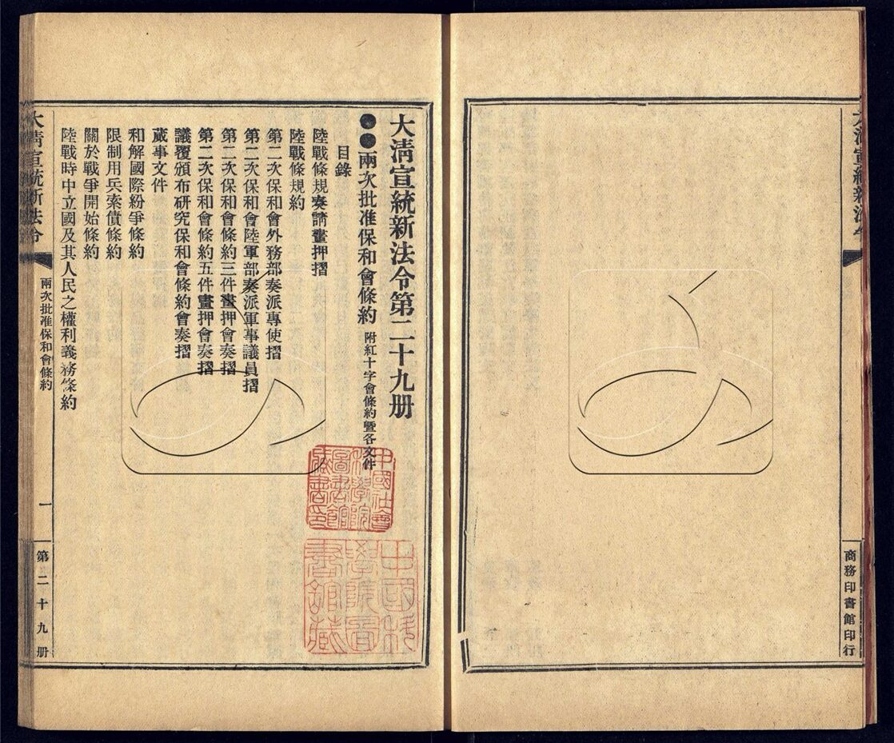 大清宣統新法令第二十九册
●●兩次批准保和會條約 附紅十字會條約暨各文件
目錄
陸戰條規奏請畫押摺
陸戰條規約
第二次保和會外務部奏派專使摺
第二次保和會陸軍部奏派軍事議員摺
第二次保和會條約三件畫押會奏摺
第二次保和會條約五件畫押會奏摺
議覆頒布研究保和會條約會奏摺
蕆事文件
和解國際紛爭條約
限制用兵索債條約
關於戰爭開始條約
陸戰時中立國及其人民之權利義務條約
大清宣統新法令
兩次批准保和會條約
一
第二十九册
中國社會科學院圖書館藏書印
大清宣統新法令
商務印書館印行